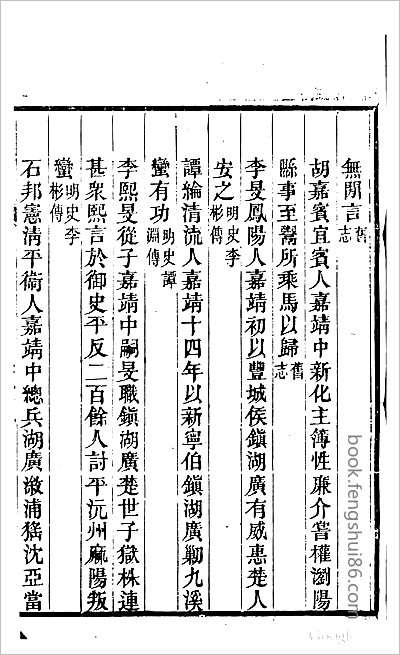 無閒言舊志
胡嘉賓宜賓人嘉靖中新化主簿性廉介嘗權瀏陽
縣事至鬻所乘馬以歸舊志
李旻鳳陽人嘉靖初以豐城侯鎮湖廣有威惠楚人
安之明史李彬傳
譚綸清流人嘉靖十四年以新寧伯鎮湖廣勦九溪
蠻有功明史譚淵傳
李熙旻從子嘉靖中嗣旻職鎮湖廣楚世子獄株連
甚衆熙言於御史平反二百餘人討平沅州麻陽叛
蠻明史李彬傳
石邦憲清平衛人嘉靖中總兵湖廣漵浦猺沈亞當
book.fengshui86.com